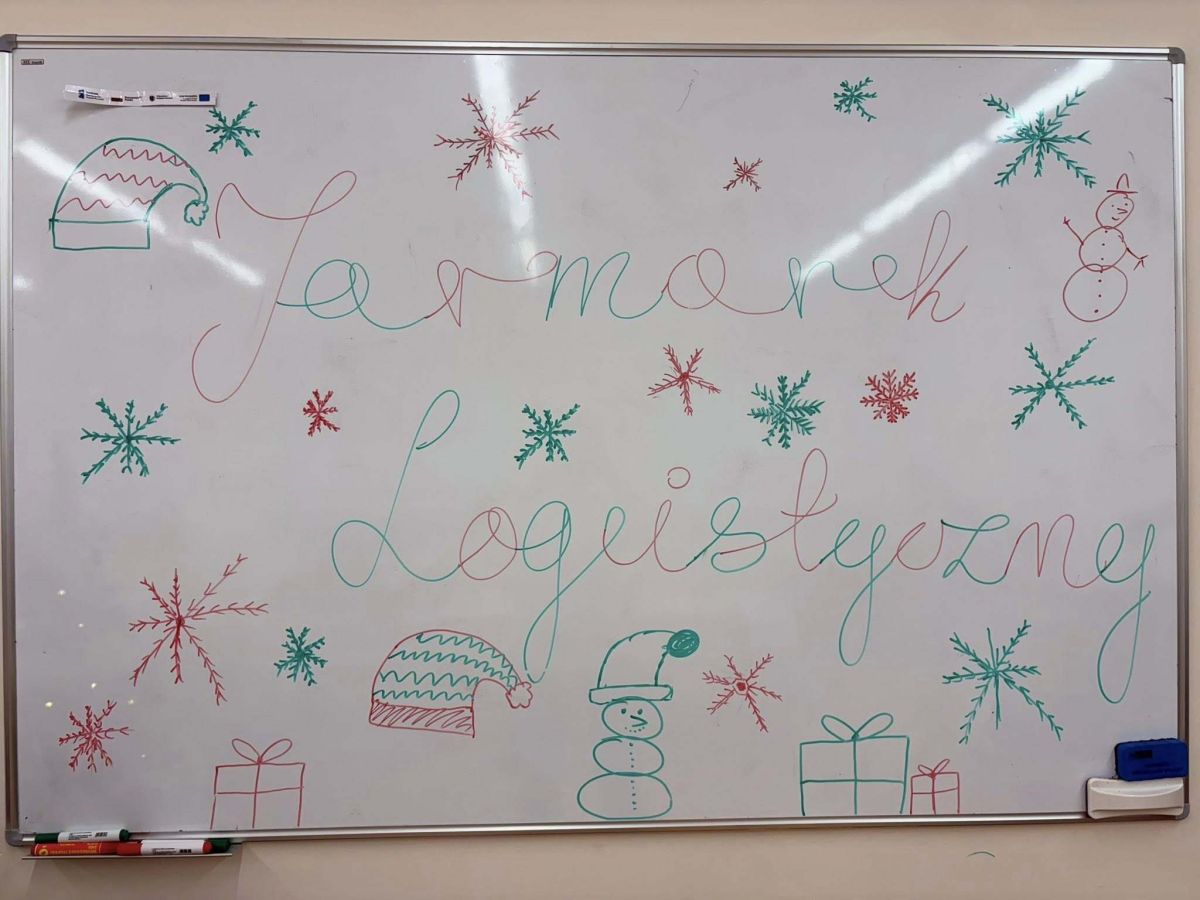 Jarmark
Logistyczny